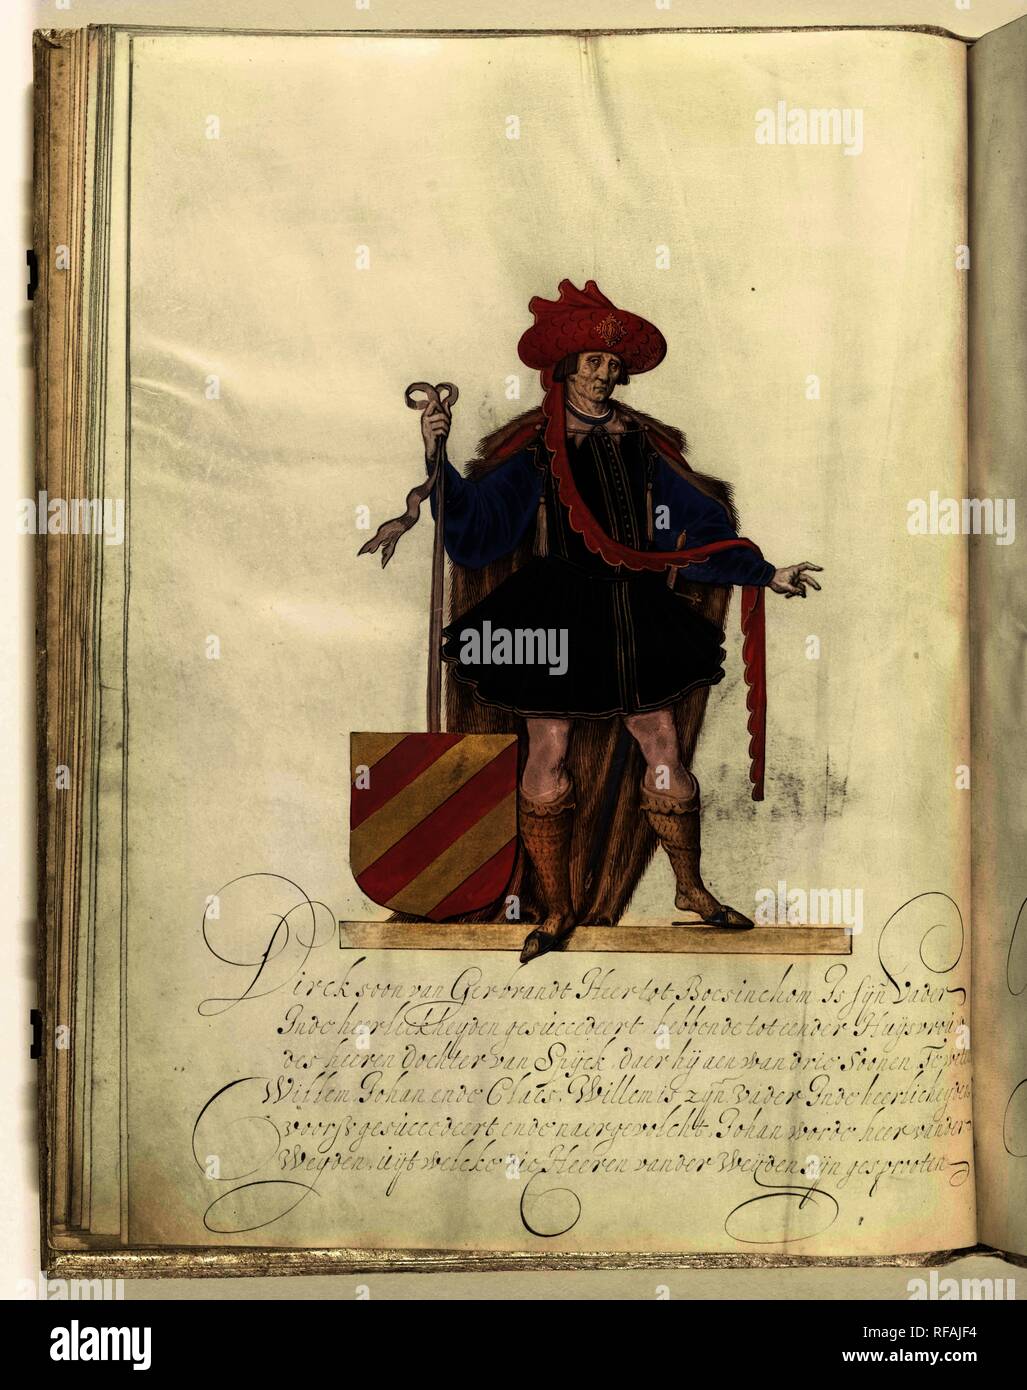 Dirck soon van Gerbrandt Heer tot Boesinchom Is sijn Vader
Inde heerlickheyden gesuccedeert, hebbende tot eender Huysvrou
des heeren Dochter van Spijck, daer hij aen wan drie Soonen, Te weten
Willem, Johan, ende Claes, Willem is zijn Vader Inde heerlicheyden
voorsz gesuccedeert ende naergevolcht, Johan worde heer vander
Weyden, uyt welcke die Heeren vander Weyden sijn gesprooten
alamy
alamy
Image ID: RFAJF4
www.alamy.com